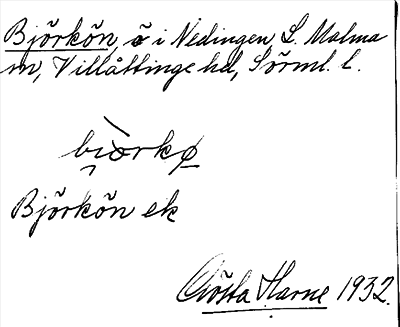 Björkön, ö i Nedingen L. Malma
sn, Villåttinge hd, Sörml. l.
Björkön ek
Gösta Harne 1932.